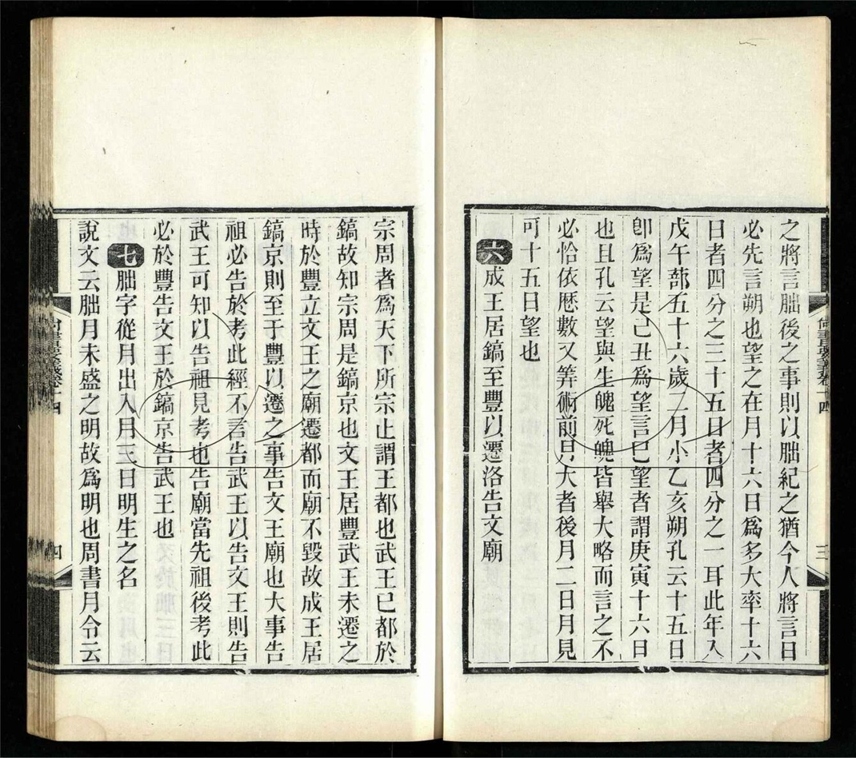 之將言朏後之事則以朏紀之猶今人將言日
必先言朔也望之在月十六日為多大率十六
日者四分之三十五日者四分之一耳此年入
戊午蔀五十六歲二月小乙亥朔孔云十五日
即為望是己丑為望言已望者謂庚寅十六日
也且孔云望與生魄死魄皆舉大略而言之不
必恰依厯數又筭術前月大者後月二日月見
可十五日望也
六成王居鎬至豐以遷洛告文廟
宗周者為天下所宗止謂王都也武王已都於
鎬故知宗周是鎬京也文王居豐武王未遷之
時於豐立文王之廟遷都而廟不毀故成王居
鎬京則至于豐以遷之事告文王廟也大事告
祖必告於考此經不言告武王以告文王則告
武王可知以告祖見考也告廟當先祖後考此
必於豐告文王於鎬京告武王也
七朏字從月出入月三日明生之名
說文云朏月未盛之明故為明也周書月令云
尚書要義卷十四
三
四